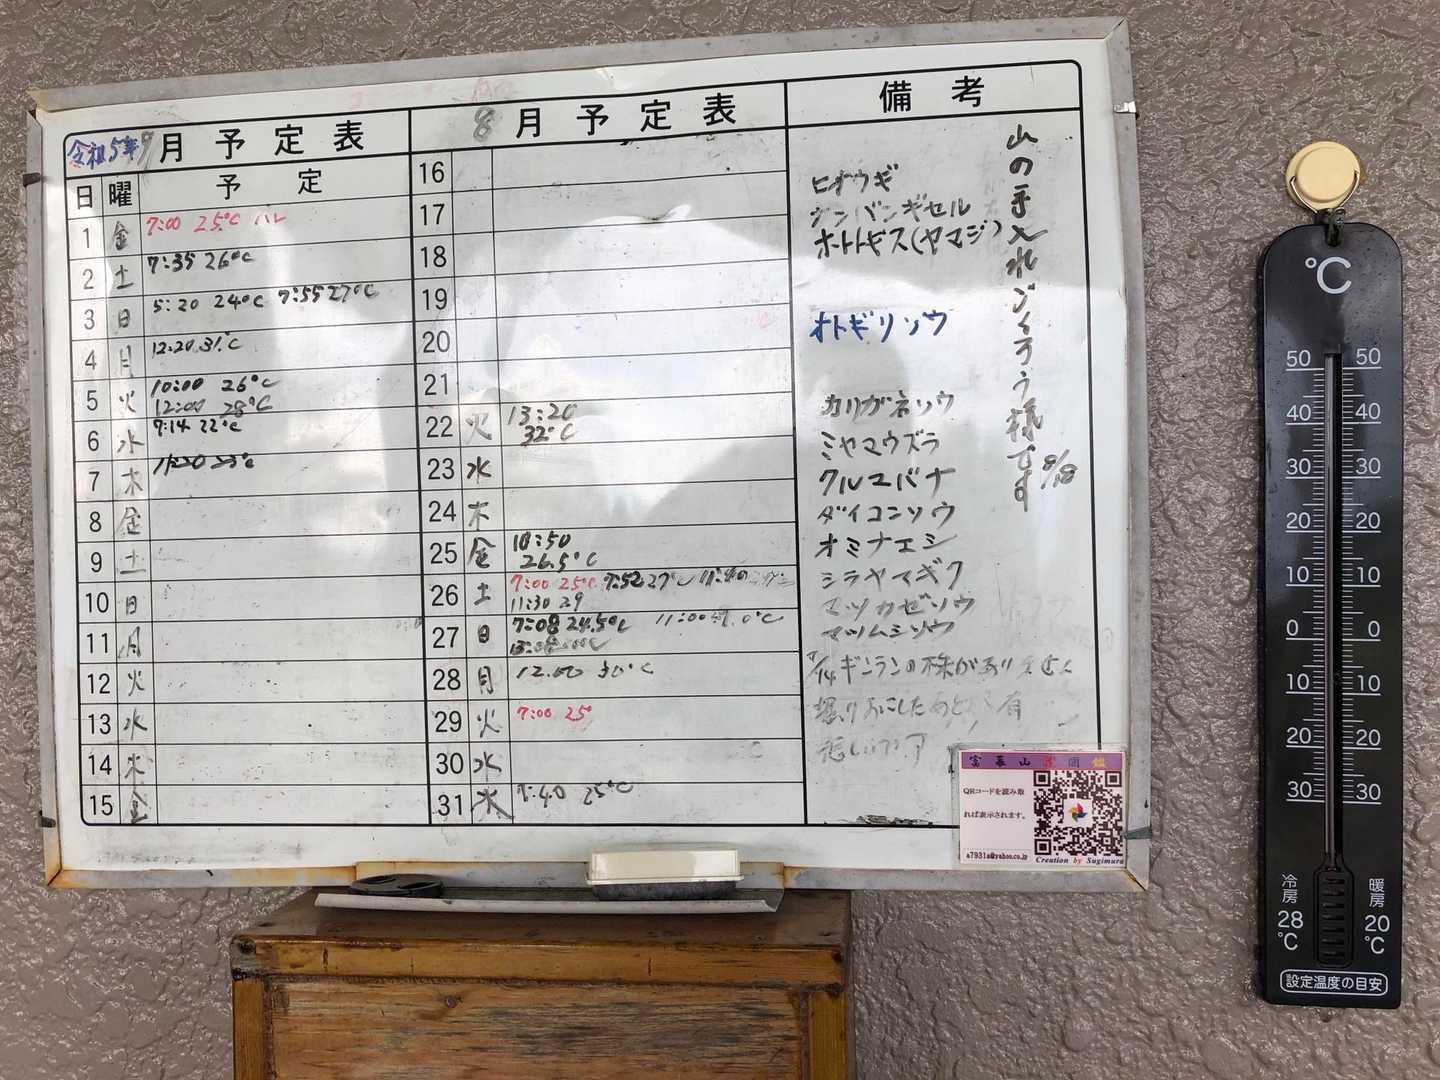 令和5年9月予定表
日 曜 予定
1 金 7:00 25℃ ハレ
2 土 7:35 26℃
3 日 5:20 24℃ 7:55 27℃
4 月 12:20 31℃
5 火 10:00 26℃
12:00 28℃
6 水 7:14 22℃
7 木
8 金
9 土
10 日
11 月
12 火
13 水
14 木
15 金
8月予定表
16
17
18
19
20
21
22 火 13:20
32℃
23 水
24 木
25 金 10:50
26.5℃
26 土 7:00 25℃ 7:52 27℃
11:30 29
27 日 7:08 24.5℃ 11:00
28 月 12:00 30℃
29 火 7:00 25°
30 水
31 木 7:40 25℃
備考
山の手入れごくろう様です
8/18
ヒオウギ
ナンバンギセル
ホトトギス(ヤマジ)
オトギリソウ
カリガネソウ
ミヤマウズラ
クルマバナ
ダイコンソウ
オミナエシ
シラヤマギク
マツカゼソウ
マツムシソウ
ギンランの株がありません
掘りおこしたあと 有
悲しい
富幕山 花 図鑑
QRコードを読み取
れば表示されます。
a7931s@yahoo.co.jp Creation by Sugimura
℃
50 50
40 40
30 30
20 20
10 10
0 0
10 10
20 20
30 30
冷房 28℃
暖房 20℃
設定温度の目安